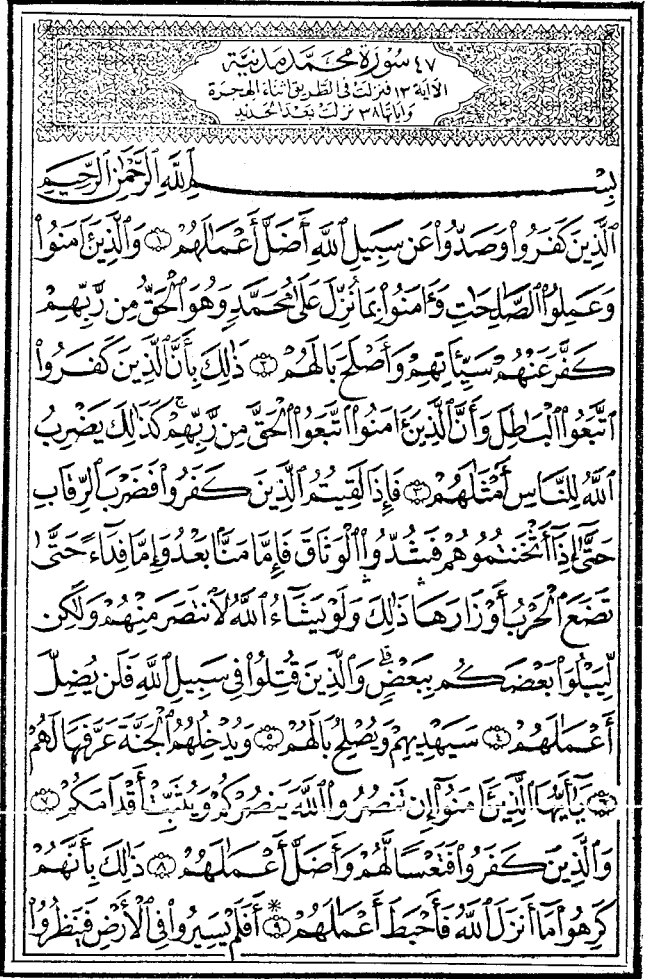 ٤٧ سُورَةُ مُحَمَّدٍ مَدَنِيَّة
الآية ١٣ فنزلت في الطريق أثناء الهجرة
وآياتها ٣٨ نزلت بعد الحديد
بِسْمِ ٱللَّهِ ٱلرَّحْمَٰنِ ٱلرَّحِيمِ
ٱلَّذِينَ كَفَرُوا۟ وَصَدُّوا۟ عَن سَبِيلِ ٱللَّهِ أَضَلَّ أَعْمَٰلَهُمْ ۝١ وَٱلَّذِينَ ءَامَنُوا۟
وَعَمِلُوا۟ ٱلصَّٰلِحَٰتِ وَءَامَنُوا۟ بِمَا نُزِّلَ عَلَىٰ مُحَمَّدٍ وَهُوَ ٱلْحَقُّ مِن رَّبِّهِمْ
كَفَّرَ عَنْهُمْ سَيِّـَٔاتِهِمْ وَأَصْلَحَ بَالَهُمْ ۝٢ ذَٰلِكَ بِأَنَّ ٱلَّذِينَ كَفَرُوا۟
ٱتَّبَعُوا۟ ٱلْبَٰطِلَ وَأَنَّ ٱلَّذِينَ ءَامَنُوا۟ ٱتَّبَعُوا۟ ٱلْحَقَّ مِن رَّبِّهِمْ ۚ كَذَٰلِكَ يَضْرِبُ
ٱللَّهُ لِلنَّاسِ أَمْثَٰلَهُمْ ۝٣ فَإِذَا لَقِيتُمُ ٱلَّذِينَ كَفَرُوا۟ فَضَرْبَ ٱلرِّقَابِ
حَتَّىٰٓ إِذَآ أَثْخَنتُمُوهُمْ فَشُدُّوا۟ ٱلْوَثَاقَ فَإِمَّا مَنًّۢا بَعْدُ وَإِمَّا فِدَآءً حَتَّىٰ
تَضَعَ ٱلْحَرْبُ أَوْزَارَهَا ۚ ذَٰلِكَ وَلَوْ يَشَآءُ ٱللَّهُ لَٱنتَصَرَ مِنْهُمْ وَلَٰكِن
لِّيَبْلُوَا۟ بَعْضَكُم بِبَعْضٍ ۗ وَٱلَّذِينَ قُتِلُوا۟ فِى سَبِيلِ ٱللَّهِ فَلَن يُضِلَّ
أَعْمَٰلَهُمْ ۝٤ سَيَهْدِيهِمْ وَيُصْلِحُ بَالَهُمْ ۝٥ وَيُدْخِلُهُمُ ٱلْجَنَّةَ عَرَّفَهَا لَهُمْ
۝٦ يَٰٓأَيُّهَا ٱلَّذِينَ ءَامَنُوٓا۟ إِن تَنصُرُوا۟ ٱللَّهَ يَنصُرْكُمْ وَيُثَبِّتْ أَقْدَامَكُمْ ۝٧
وَٱلَّذِينَ كَفَرُوا۟ فَتَعْسًا لَّهُمْ وَأَضَلَّ أَعْمَٰلَهُمْ ۝٨ ذَٰلِكَ بِأَنَّهُمْ
كَرِهُوا۟ مَآ أَنزَلَ ٱللَّهُ فَأَحْبَطَ أَعْمَٰلَهُمْ ۝٩ * أَفَلَمْ يَسِيرُوا۟ فِى ٱلْأَرْضِ فَيَنظُرُوا۟